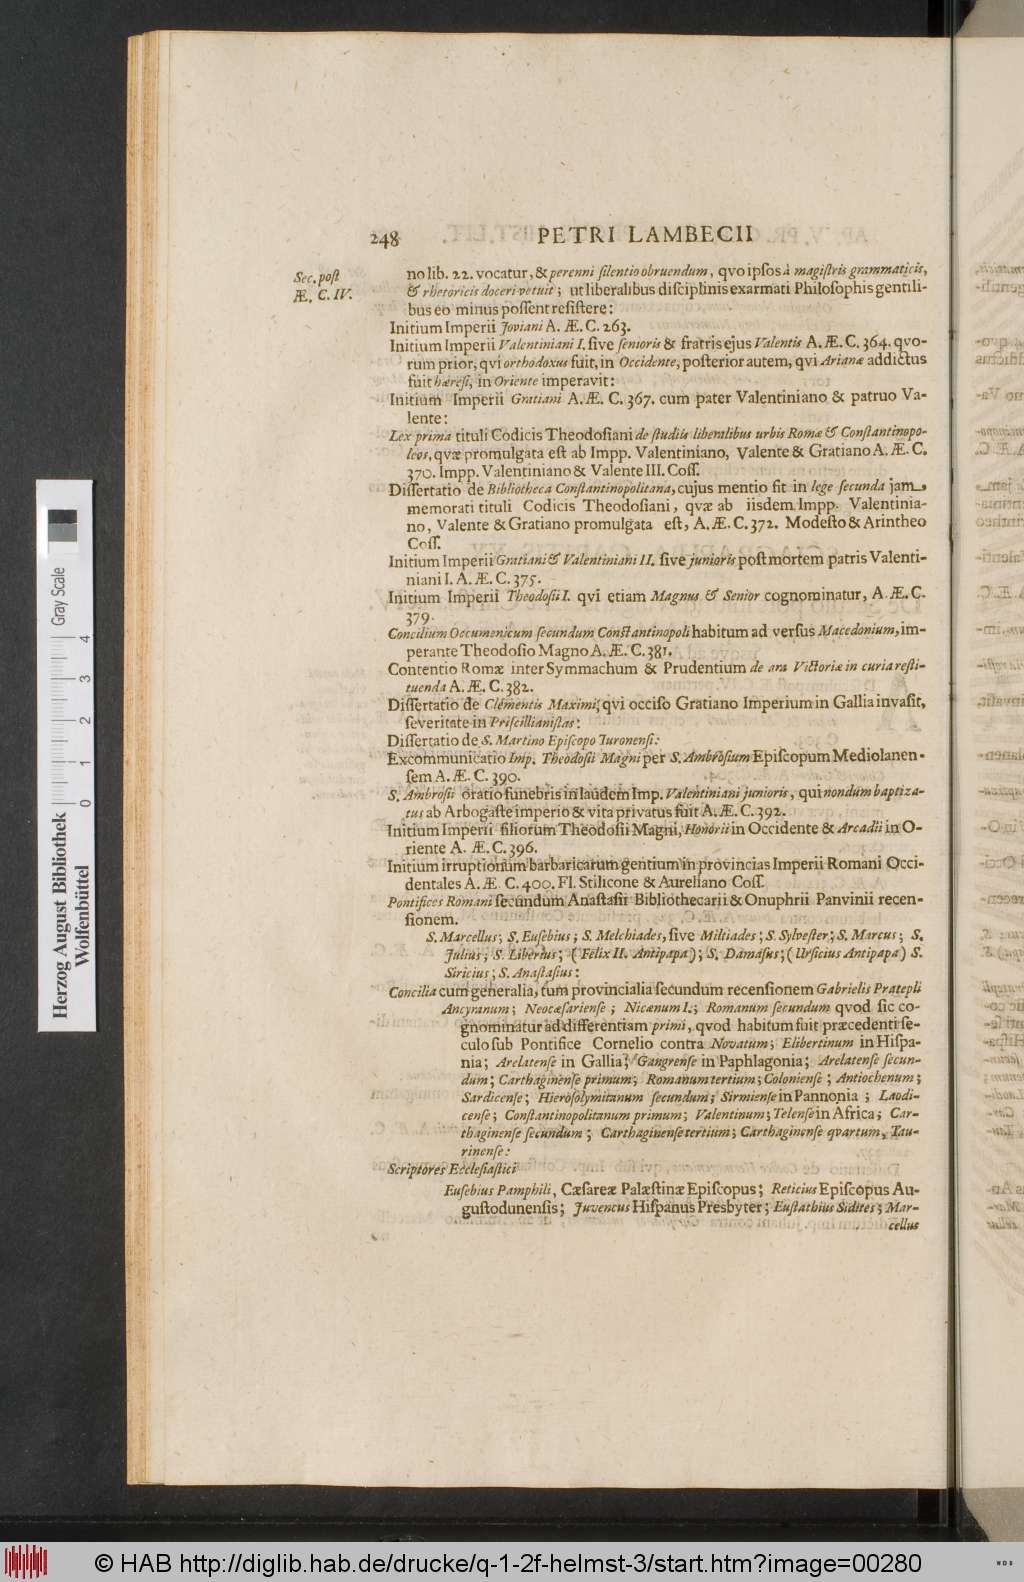 248 PETRI LAMBECII
Sec. post
Æ. C. IV.
no lib. 22. vocatur, & perenni silentio obruendum, qvo ipsos à magistris grammaticis,
& rhetoricis doceri vetuit; ut liberalibus disciplinis exarmati Philosophis gentili-
bus eo minus possent resistere:
Initium Imperii Joviani A. Æ. C. 263.
Initium Imperii Valentiniani I. sive senioris & fratris ejus Valentis A. Æ. C. 364. qvo-
rum prior, qvi orthodoxus fuit, in Occidente, posterior autem, qvi Arianæ addictus
fuit hæresi, in Oriente imperavit:
Initium Imperii Gratiani A. Æ. C. 367. cum pater Valentiniano & patruo Va-
lente:
Lex prima tituli Codicis Theodosiani de studiis liberalibus urbis Romæ & Constantinopo-
leos, qvæ promulgata est ab Impp. Valentiniano, Valente & Gratiano A. Æ. C.
370. Impp. Valentiniano & Valente III. Coss.
Dissertatio de Bibliotheca Constantinopolitana, cujus mentio fit in lege secunda jam
memorati tituli Codicis Theodosiani, qvæ ab iisdem Impp. Valentinia-
no, Valente & Gratiano promulgata est, A. Æ. C. 372. Modesto & Arintheo
Coss.
Initium Imperii Gratiani & Valentiniani II. sive junioris post mortem patris Valenti-
niani I. A. Æ. C. 375.
Initium Imperii Theodosii I. qvi etiam Magnus & Senior cognominatur, A. Æ. C.
379.
Concilium Oecumenicum secundum Constantinopoli habitum ad versus Macedonium, im-
perante Theodosio Magno A. Æ. C. 381.
Contentio Romæ inter Symmachum & Prudentium de ara Victoriæ in curia resti-
tuenda A. Æ. C. 382.
Dissertatio de Clementis Maximi, qvi occiso Gratiano Imperium in Gallia invasit,
severitate in Priscillianistas:
Dissertatio de S. Martino Episcopo Turonensi:
Excommunicatio Imp. Theodosii Magni per S. Ambrosium Episcopum Mediolanen-
sem A. Æ. C. 390.
S. Ambrosii oratio funebris in laudem Imp. Valentiniani junioris, qui nondum baptiza-
tus ab Arbogaste imperio & vita privatus fuit A. Æ. C. 392.
Initium Imperii filiorum Theodosii Magni, Honorii in Occidente & Arcadii in O-
riente A. Æ. C. 396.
Initium irruptionum barbaricarum gentium in provincias Imperii Romani Occi-
dentales A. Æ. C. 400. Fl. Stilicone & Aureliano Coss.
Pontifices Romani secundum Anastasii Bibliothecarii & Onuphrii Panvinii recen-
sionem.
S. Marcellus; S. Eusebius; S. Melchiades, sive Miltiades; S. Sylvester; S. Marcus; S.
Julius; S. Liberius; (Felix II. Antipapa); S. Damasus; (Ursicius Antipapa) S.
Siricius; S. Anastasius:
Concilia cum generalia, tum provincialia secundum recensionem Gabrielis Prateoli
Ancyranum; Neocæsariense; Nicænum I.; Romanum secundum qvod sic co-
gnominatur ad differentiam primi, qvod habitum fuit præcedenti se-
culo sub Pontifice Cornelio contra Novatum; Elibertinum in Hispa-
nia; Arelatense in Gallia; Gangrense in Paphlagonia; Arelatense secun-
dum; Carthaginense primum; Romanum tertium; Coloniense; Antiochenum;
Sardicense; Hierosolymitanum secundum; Sirmiense in Pannonia; Laodi-
cense; Constantinopolitanum primum; Valentinum; Telense in Africa; Car-
thaginense secundum; Carthaginense tertium; Carthaginense qvartum, Tau-
rinense:
Scriptores Ecclesiastici
Eusebius Pamphili, Cæsareæ Palæstinæ Episcopus; Reticius Episcopus Au-
gustodunensis; Juvencus Hispanus Presbyter; Eustathius Sidites; Mar-
cellus
Herzog August Bibliothek
Wolfenbüttel
0 1 2 3 4
Gray Scale
© HAB http://diglib.hab.de/drucke/q-1-2f-helmst-3/start.htm?image=00280